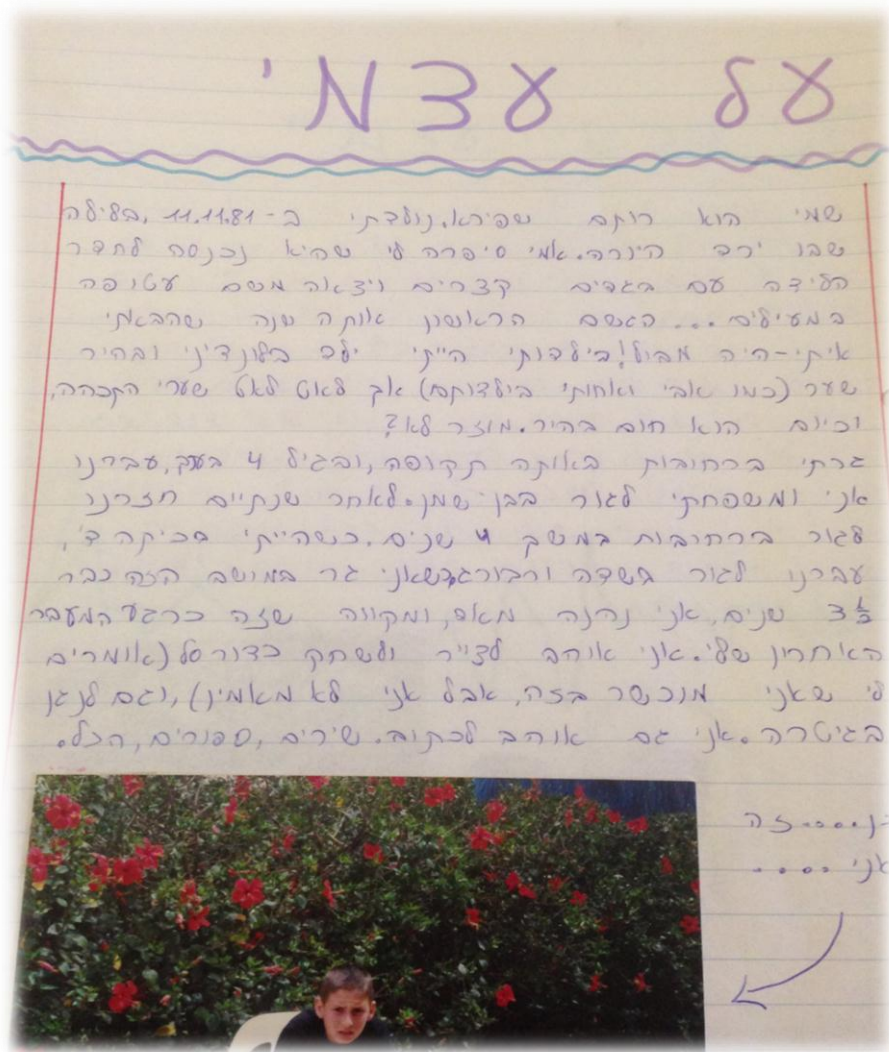 על עצמי
שמי הוא רותם שפירא. נולדתי ב-11.11.81, בלילה
שבו ירד היורה. אמי סיפרה לי שהיא נכנסה לחדר
הלידה עם בגדים קצרים ויצאה משם עטופה
במעילים... הגשם הראשון אותה שנה שהבאתי
איתי-היה מבול! בילדותי הייתי ילד בלונדיני ובהיר
שער (כמו אבי ואחותי בילדותם) אך לאט לאט שערי הקכהה,
וכיום הוא חום בהיר. מוזר לא?
גרתי ברחובות באותה תקופה, ובגיל 4 בערך, עברנו
אני ומשפחתי לגור בבן-שמן. לאחר שנתיים חזרנו
לגור ברחובות במשך 4 שנים. כשהייתי בכיתה ד',
עברנו לגור בשדה ורבורג. כשאני גר במושב הזה כבר
3½ שנים, אני נהנה מאוד, ומקווה שזה כרגע המעבר
האחרון שלי. אני אוהב לצייר ולשחק כדורסל (אומרים
לי שאני מוכשר בזה, אבל אני לא מאמין), וגם לנגן
בגיטרה. אני גם אוהב לכתוב. שירים, ספורים, הכל.
זה
אני ....